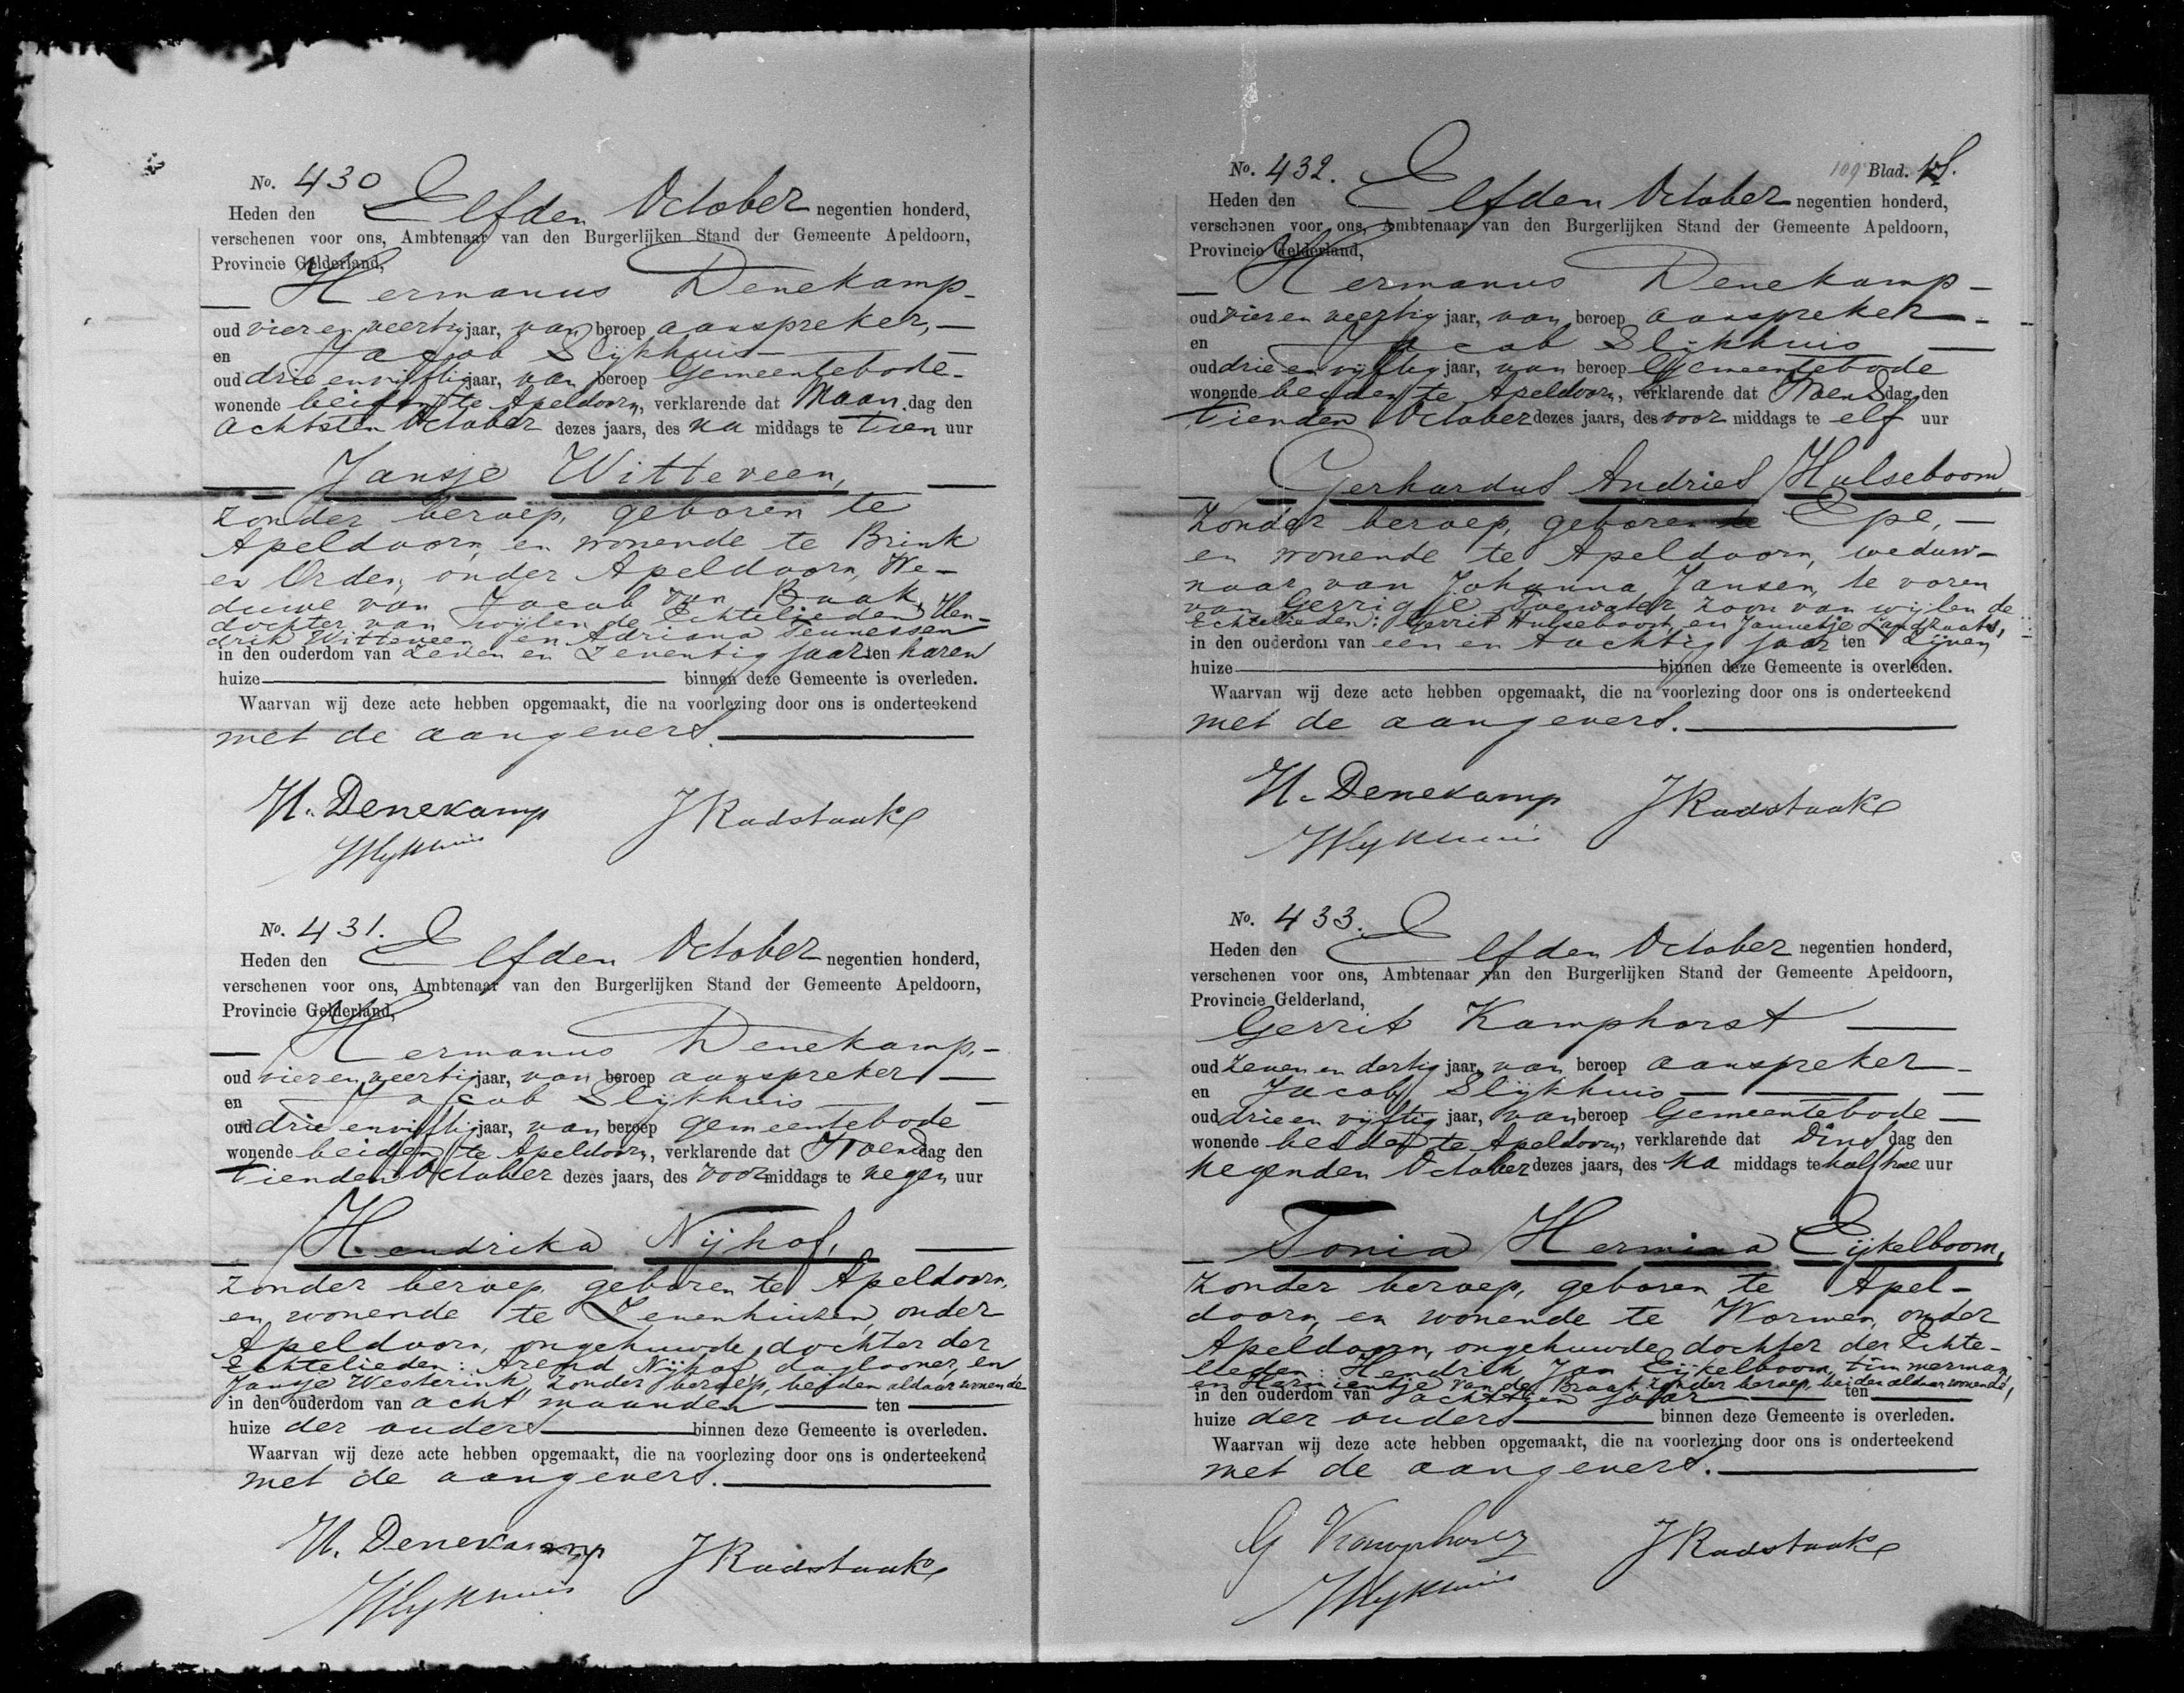 No. 430
Heden den Elfden October negentien honderd,
verschenen voor ons, Ambtenaar van den Burgerlijken Stand der Gemeente Apeldoorn,
Provincie Gelderland,
Hermanus Denekamp
oud vier en veertig jaar, van beroep aanspreker,
en Jacob Slijkhuis
oud drie en vijftig jaar, van beroep Gemeentebode
wonende beiden te Apeldoorn, verklarende dat Maandag den
achtsten October dezes jaars, des na middags te tien uur
Jansje Witteveen,
zonder beroep, geboren te
Apeldoorn en wonende te Brink
en Orden, onder Apeldoorn, We-
duwe van Jacob van Baak,
dochter van wijlen de Echtelieden Hen-
drik Witteveen en Adriana Teunessen
in den ouderdom van zeven en zeventig jaar ten haren
huize binnen deze Gemeente is overleden.
Waarvan wij deze acte hebben opgemaakt, die na voorlezing door ons is onderteekend
met de aangevers.
H. Denekamp JRadstaake
JSlijkhuis
No. 431.
Heden den Elfden October negentien honderd,
verschenen voor ons, Ambtenaar van den Burgerlijken Stand der Gemeente Apeldoorn,
Provincie Gelderland,
Hermanus Denekamp,
oud vier en veertig jaar, van beroep aanspreker
en Jacob Slijkhuis
oud drie en vijftig jaar, van beroep gemeentebode
wonende beiden te Apeldoorn, verklarende dat Woensdag den
tienden October dezes jaars, des voormiddags te negen uur
Hendrika Nijhof,
zonder beroep, geboren te Apeldoorn,
en wonende te Zevenhuizen, onder
Apeldoorn, ongehuwde dochter der
Echtelieden: Arend Nijhof, daglooner, en
Jansje Westerink, zonder beroep, beiden aldaar wonende
in den ouderdom van acht maanden ten
huize der ouders binnen deze Gemeente is overleden.
Waarvan wij deze acte hebben opgemaakt, die na voorlezing door ons is onderteekend
met de aangevers.
H. Denekamp JRadstaake
JSlijkhuis
No. 432. 109 Blad.
Heden den Elfden October negentien honderd,
verschenen voor ons, Ambtenaar van den Burgerlijken Stand der Gemeente Apeldoorn,
Provincie Gelderland,
Hermanus Denekamp
oud vier en veertig jaar, van beroep aanspreker
en Jacob Slijkhuis
oud drie en vijftig jaar, van beroep Gemeentebode
wonende beiden te Apeldoorn, verklarende dat Woensdag den
tienden October dezes jaars, des voor middags te elf uur
Gerhardus Andries Hulseboom,
zonder beroep, geboren te Epe,
en wonende te Apeldoorn, weduw-
naar van Johanna Jansen, te voren
van Gerrigje Toewater, zoon van wijlen de
Echtelieden: Gerrit Hulseboom en Jannetje Landzaats,
in den ouderdom van een en tachtig jaar ten zijnen
huize binnen deze Gemeente is overleden.
Waarvan wij deze acte hebben opgemaakt, die na voorlezing door ons is onderteekend
met de aangevers.
H. Denekamp JRadstaake
JSlijkhuis
No. 433.
Heden den Elfden October negentien honderd,
verschenen voor ons, Ambtenaar van den Burgerlijken Stand der Gemeente Apeldoorn,
Provincie Gelderland,
Gerrit Kamphorst
oud zeven en dertig jaar, van beroep aanspreker
en Jacob Slijkhuis
oud drie en vijftig jaar, van beroep Gemeentebode
wonende beiden te Apeldoorn, verklarende dat Dinsdag den
negenden October dezes jaars, des na middags te half twee uur
Tonia Hermina Eijkelboom,
zonder beroep, geboren te Apel-
doorn, en wonende te Wormen, onder
Apeldoorn, ongehuwde dochter der Echte-
lieden: Hendrik Jan Eijkelboom, timmerman,
en Hermientje van de Braak, zonder beroep, beiden aldaar wonende,
in den ouderdom van achttien jaar ten
huize der ouders binnen deze Gemeente is overleden.
Waarvan wij deze acte hebben opgemaakt, die na voorlezing door ons is onderteekend
met de aangevers.
G Kamphorst JRadstaake
JSlijkhuis